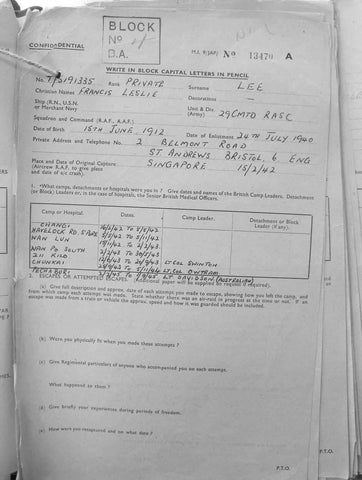 BLOCK
No
B.A.
CONFIDENTIAL
M.I. 9/JAP/ No 13470 A
WRITE IN BLOCK CAPITAL LETTERS IN PENCIL
No. T/5191335 Rank PRIVATE Surname LEE
Christian Names FRANCIS LESLIE Decorations
Ship (R.N., U.S.N. or Merchant Navy) Unit & Div. (Army) 29 CMTD RASC
Squadron and Command (R.A.F., A.A.F.)
Date of Birth 15TH JUNE 1912 Date of Enlistment 24TH JULY 1940
Private Address and Telephone No. 2 BELMONT ROAD
ST. ANDREWS BRISTOL, 6 ENG
Place and Date of Original Capture SINGAPORE 15/2/42
(Aircrew R.A.F. to give place and date of a/c crash).
1. What camps, detachments or hospitals were you in? Give dates and names of the British Camp Leaders. Detachment (or Block) Leaders or, in the case of hospitals, the Senior British Medical Officers.
Camp or Hospital. Dates. Camp Leader. Detachment or Block Leader (if any).
CHANGI
HAVELOCK RD. S'PORE
WAN LUN
WAN PO SOUTH
211 KILO LT COL SWINTON
CHUNKAI LT. COL OUTRAM
TECHABURI LT DAVIDSON (AUSTRALIAN)
2. ESCAPES OR ATTEMPTED ESCAPES. (Additional paper will be supplied if required).
(a) Give full description and approx. date of each attempt you made to escape, showing how you left the camp, and from which camp each attempt was made. State whether there was an air-raid in progress at the time or not. If an escape was made from a train or vehicle the approx. speed and how it was guarded should be included.
(b) Were you physically fit when you made these attempts?
(c) Give Regimental particulars of anyone who accompanied you on each attempt.
What happened to them?
(d) Give briefly your experiences during periods of freedom.
(e) How were you recaptured and on what date?
P.T.O.
P.T.O.